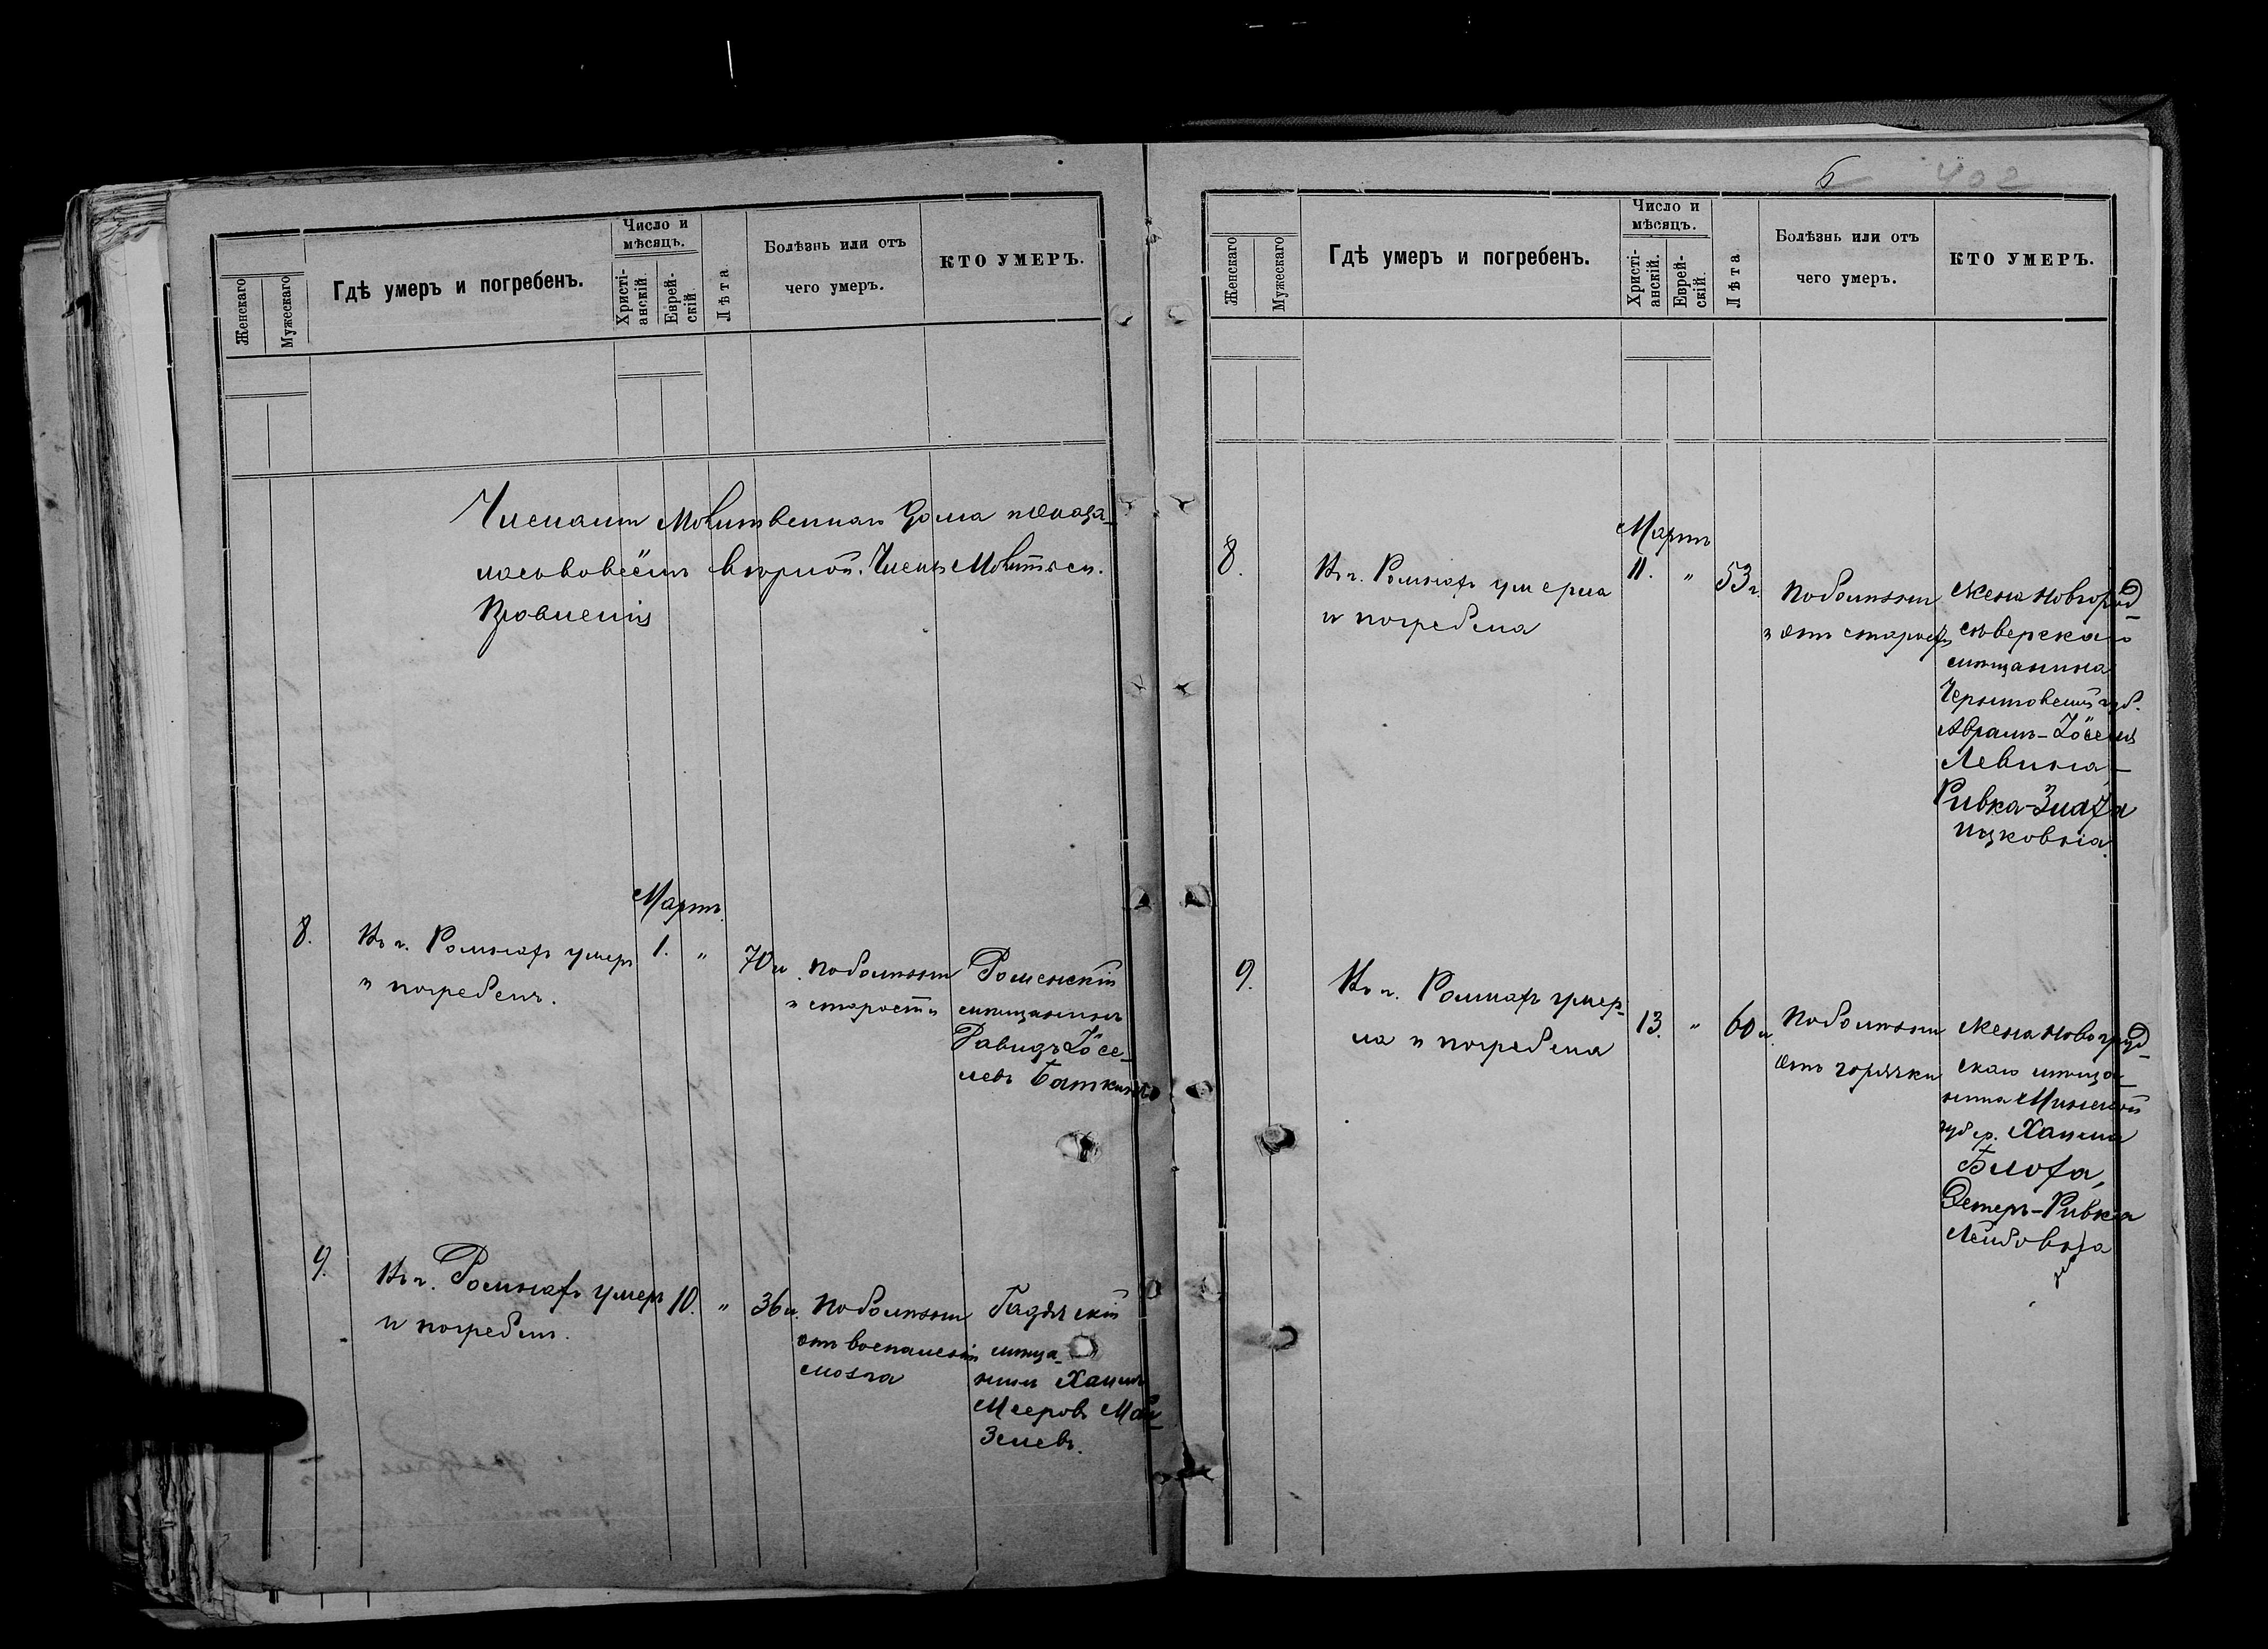 Женскаго
Мужескаго
Гдѣ умеръ и погребенъ.
Число и
мѣсяцъ.
Христі-
анскій.
Еврей-
скій.
Лѣта
Болѣзнь или отъ
чего умеръ.
КТО УМЕРЪ.
Членами Молитвеннаго Дома
вѣрной. Членъ Молитвен.
Правленія
Мартъ
8.
Въ г. Ромнахъ умеръ
и погребенъ.
1.
"
70 л.
по болѣзни
и старости
Роменскій
мѣщанинъ
Давидъ Іосе-
левъ Баткинъ
9.
Въ г. Ромнахъ умеръ
и погребенъ.
10.
"
36 л.
по болѣзни
отъ воспаленія
мозга
Гадячскій
мѣща-
нинъ Хаимъ
Мееровъ Май-
зелевъ.
6
402
Женскаго
Мужескаго
Гдѣ умеръ и погребенъ.
Число и
мѣсяцъ.
Христі-
анскій.
Еврей-
скій.
Лѣта
Болѣзнь или отъ
чего умеръ.
КТО УМЕРЪ.
Мартъ
8.
Въ г. Ромнахъ умерла
и погребена
11.
"
53 г.
по болѣзни
и отъ старости
Жена Новгород-
сѣверскаго
мѣщанина
Черниговской губ.
Абрамъ-Іоселя
Левина
Ривка-Злата
Ицковна.
9.
Въ г. Ромнахъ умер-
ла и погребена
13.
"
60 л.
по болѣзни
отъ горячки
Жена Новогруд-
скаго мѣща-
нина Минской
губер. Хаима
Блоха,
Эстеръ-Ривка
Лейбовна